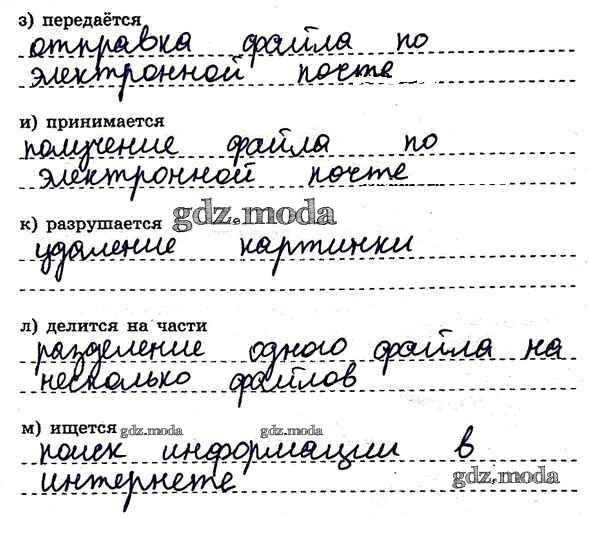 з) передаётся
отправка файла по
электронной почте
и) принимается
получение файла по
электронной почте
к) разрушается gdz.moda
удаление картинки
л) делится на части
разделение одного файла на
несколько файлов
м) ищется gdz.moda gdz.moda
поиск информации в
интернете gdz.moda